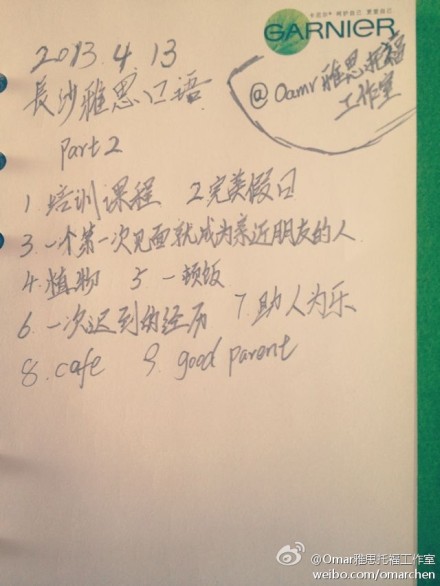 GARNIER
2013.4.13
@Oamr雅思托福
工作室
長沙雅思口语
Part 2
1.培训课程 2.完美假日
3.一个第一次见面就成为亲近朋友的人
4.植物 5 一顿饭
6.一次迟到的经历 7.助人为乐
8.cafe 9.good parent
@Omar雅思托福工作室
weibo.com/omarchen